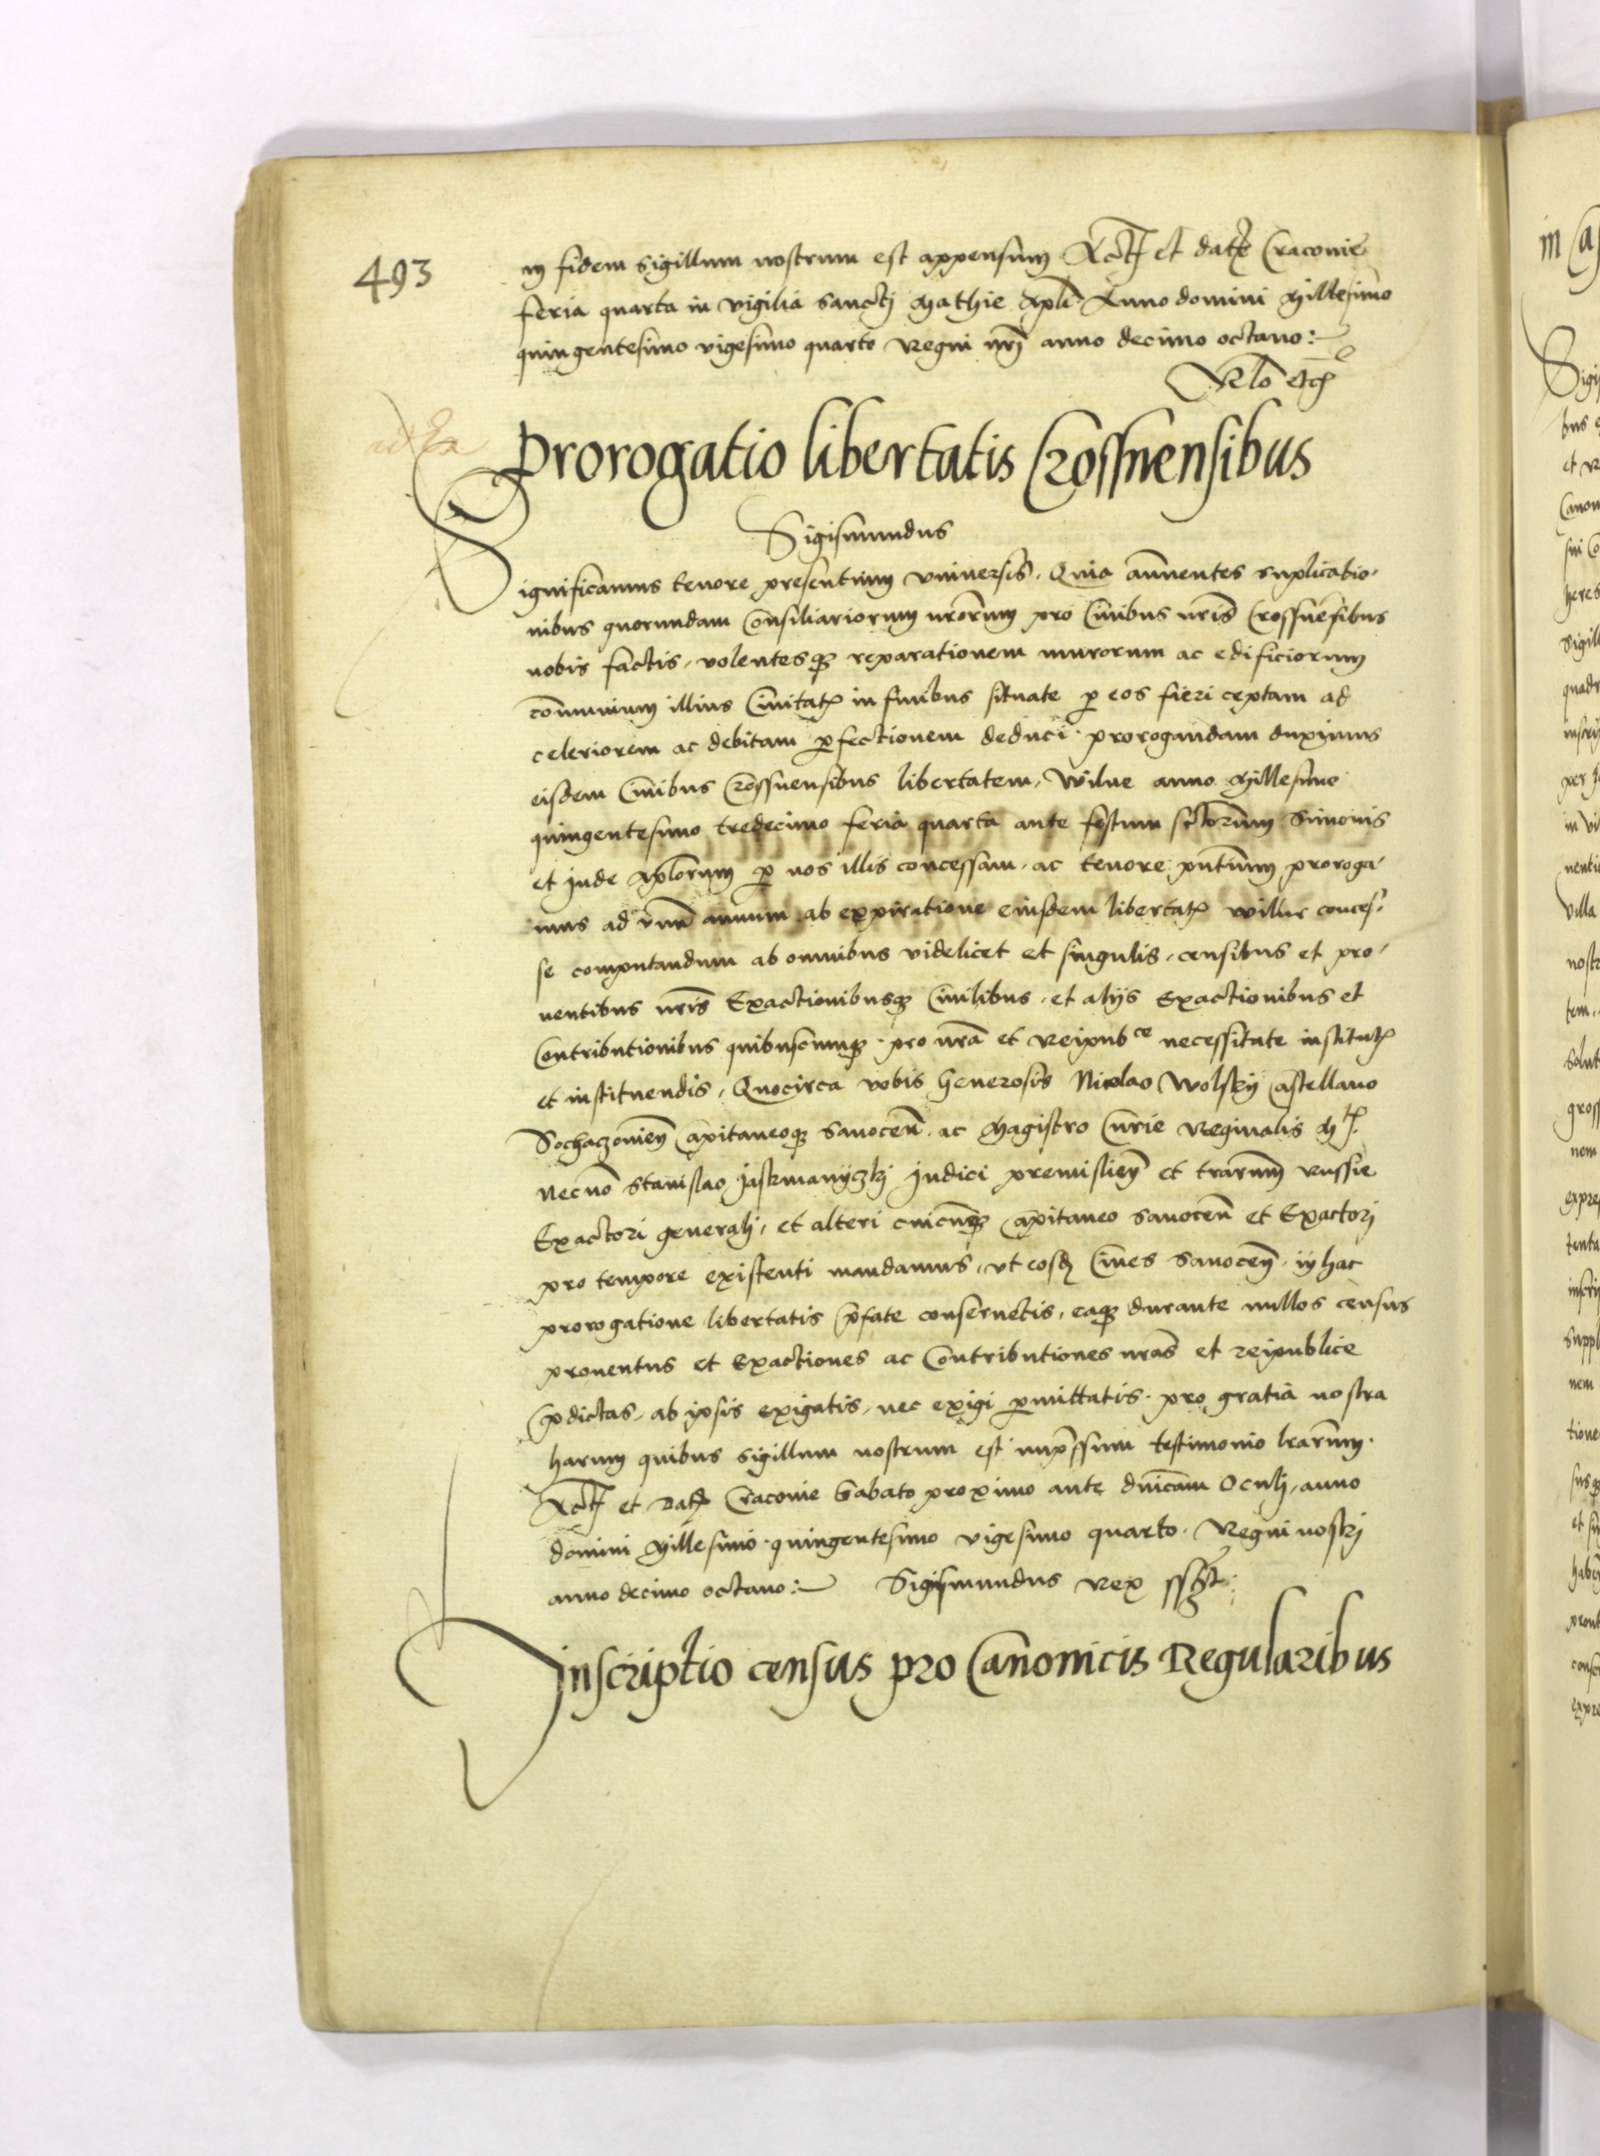 493
in fidem sigillum nostrum est appensum Act et dat Cracovie
feria quarta in vigilia sancti Mathie Apli Anno domini Millesimo
quingentesimo vigesimo quarto Regni nri anno decimo octavo:
Rlo
Prorogatio libertatis Crossnensibus
Sigismundus
Significamus tenore presentium universis. Quia annuentes suplicatio-
nibus quorundam Consiliariorum nrorum pro Civibus nris Crossnesibus
nobis factis, volentesq reparationem murorum ac edificiorum
comunium illius Civitat in finibus situate p eos fieri ceptam ad
celeriorem ac debitam pfectionem deduci. prorogandam duximus
eisdem Civibus Crossnensibus libertatem, Wilne anno Millesimo
quingentesimo tredecimo feria quarta ante festum sctorum Simonis
et Jude Aplorum p nos illis concessam. ac tenore pntium proroga-
mus ad unu annum ab expiratione eiusdem libertat Willne conces-
se computandum ab omnibus videlicet et singulis, censibus et pro-
ventibus nris Exactionibusq Civilibus. et alijs Exactionibus et
Contributionibus quibuscunq. pro nra et Reipubce necessitate institut
et instituendis, Quocirca vobis Generosis Nicolao Wolsky Castellano
Sochaczovien Capitaneoq Sanocen. ac Magistro Curie Reginalis M.
Necno Stanislao Jastzmanyczkj Judici premislien et trarum Russie
Exactori generalj, et alteri cuicunq Capitaneo Sanocen et Exactorj
pro tempore existenti mandamus, ut eosd Cives Sanocen. in hac
prorogatione libertatis pfate conservetis, eaq durante nullos census
proventus et Exactiones ac Contributiones nras et reipublice
pdictas, ab ipsis exigatis, nec exigi pmittatis. pro gratia nostra
harum quibus sigillum nostrum est impssum testimonio lrarum.
Act et Dat Cracovie Sabato proximo ante dnicam Oculj, anno
domini Millesimo quingentesimo vigesimo quarto. Regni nostrj
anno decimo octavo: Sigismundus Rex sszt
Inscriptio census pro Canonicis Regularibus